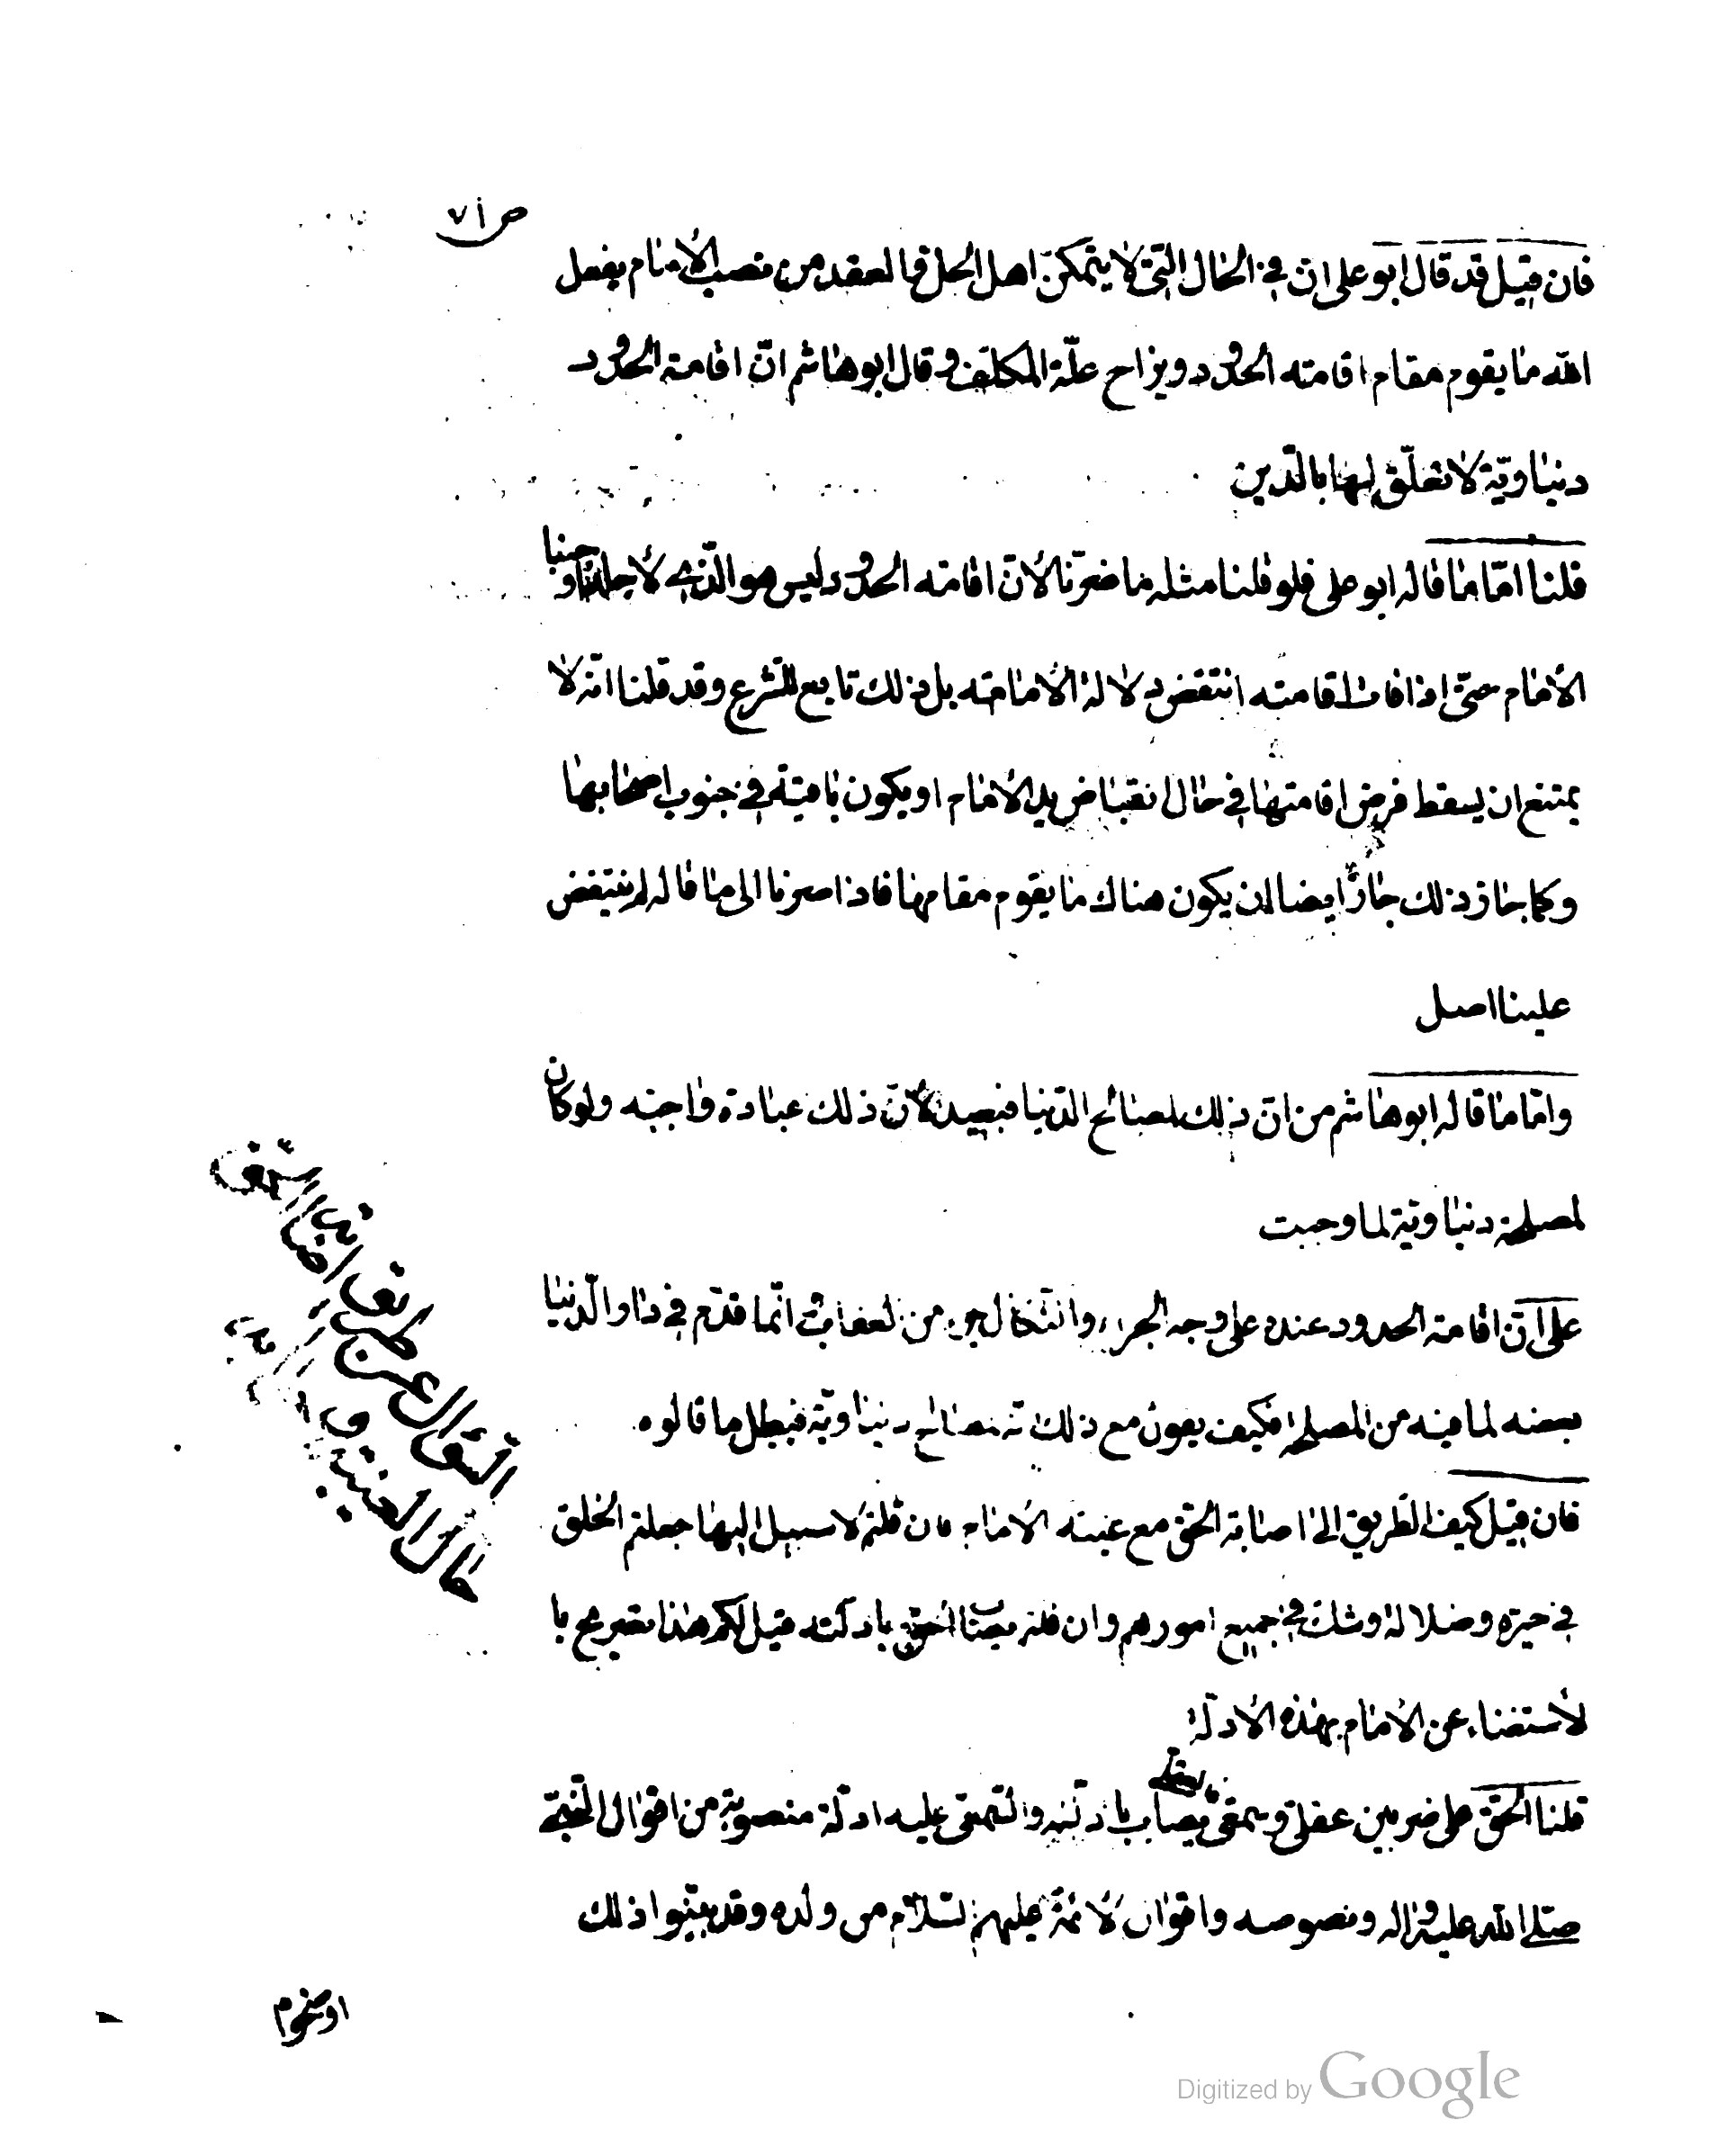 ص ٧١
فان قيل قد قال ابو على ان في الحال التي لا يتمكن اهل الحل والعقد من نصب الامام يفعل
الله ما يقوم مقام اقامته الحدود ويزاح علّة المكلف وقال ابو هاشم انّ اقامة الحدود
دنياويّة لا تعلّق لها بالدّين
قلنا امّا ما قاله ابو على فلو قلنا مثله ما ضرّنا لانّ اقامته الحدود ليس هو الّذي لاجله اوجبنا
الامام حتّى اذا فات اقامته انتقض دلالة الامامته بل ذلك تابع للشرع وقد قلنا انّه لا
يمتنع ان يسقط فرض اقامتها في حال انقباض يد الامام او يكون باقية في جنوب اصحابها
وكما جاز ذلك جاز ايضا ان يكون هناك ما يقوم مقامها فاذا صرنا الى ما قاله لم ينتقض
علينا اصل
وامّا ما قاله ابو هاشم من انّ ذلك لمصالح الدّنيا فبعيد لانّ ذلك عبادة واجبه ولو كان
لمصلحة دنياويّة لما وجبت
على انّ اقامة الحدود عنده على وجه الجزاء والنّكال جزء من العقاب وانّما قدّم في دار الدّنيا
بعضه لما فيه من المصلحة فكيف يقول مع ذلك انّه لمصالح دنياويّة فبطل ما قالوه
فان قيل كيف الطّريق الى اصابة الحق مع غيبته الامام فان قلتم لا سبيل اليها جعلتم الخلق
في حيرة وضلالة وشك في جميع امورهم وان قلتم يصاب الحق بادلّته قيل لكم هذا تصريح با
لاستغناء عن الامام بهذه الادلّة
قلنا الحق على ضربين عقلى وسمعى فالعقلى يصاب بادلّته والسّمعى عليه ادلّة منصوبة من اقوال النّبيّ
صلى الله عليه واله ونصوصه واقوال الائمّة عليهم السّلام من ولده وقد بيّنوا ذلك
اوضحوه
السّؤال عن طريق اصابة الحق
حال الغيبة و